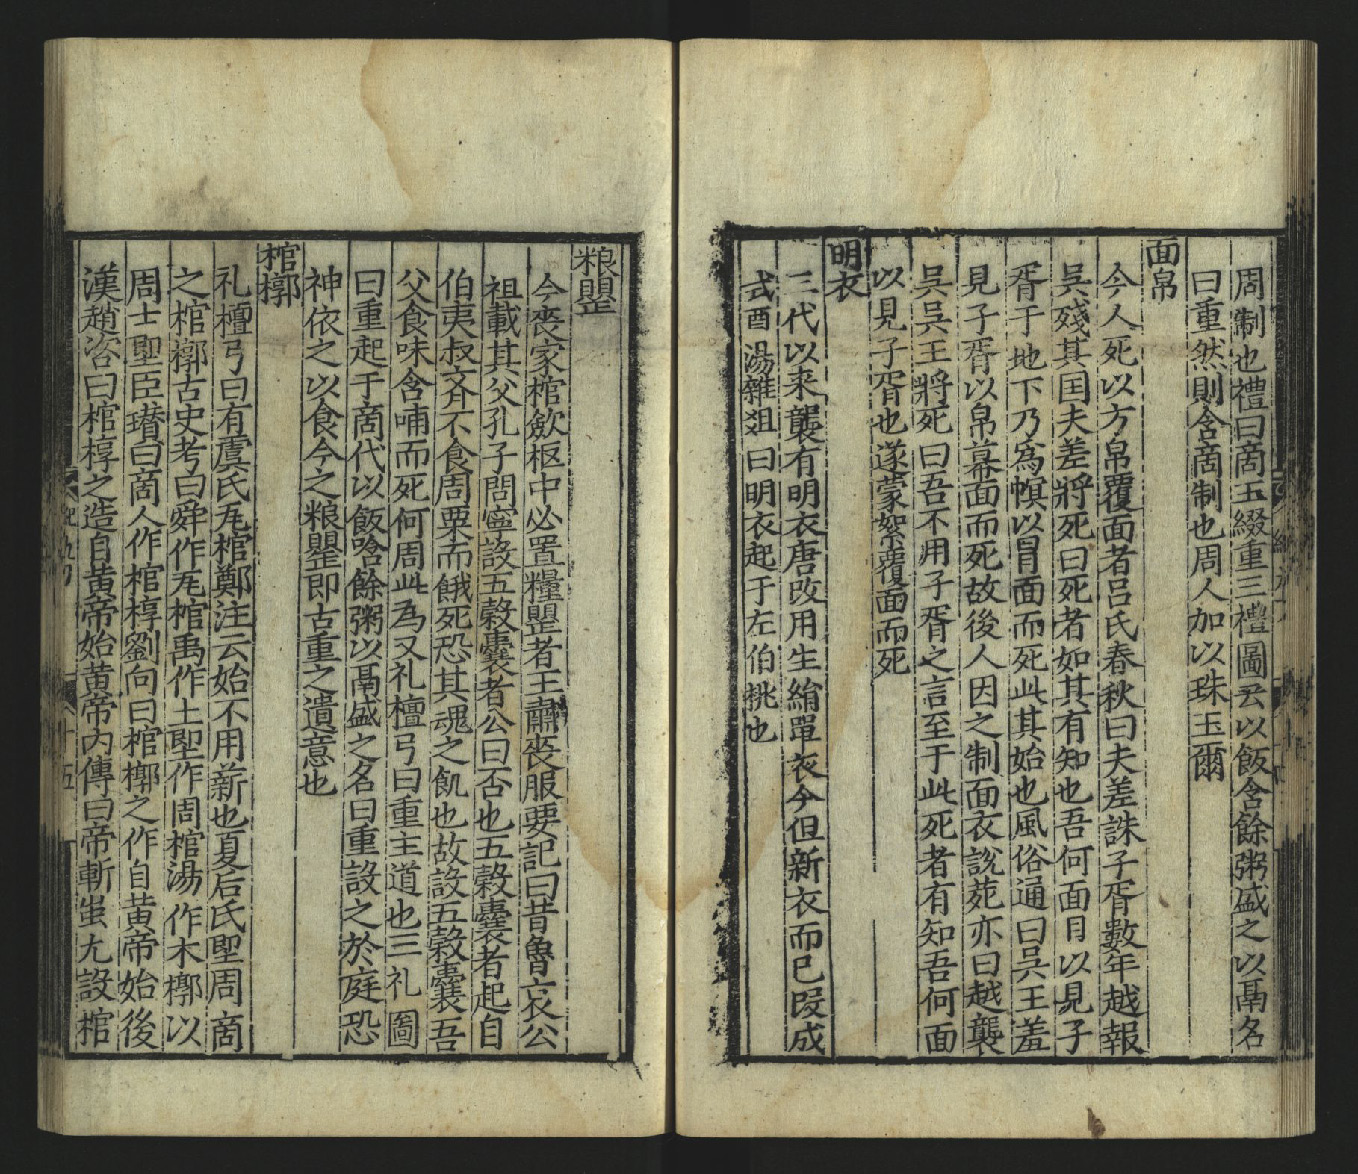 周制也禮曰啇玉綴重三禮圖云以飯含餘粥盛之以鬲名
曰重然則含啇制也周人加以珠玉爾
面帛
今人死以方帛覆面者吕氏春秋曰夫差誅子胥數年越報
吴殘其囯夫差將死曰死者如其有知也吾何面目以見子
胥于地下乃爲幎以冒面而死此其始也風俗通曰吴王羞
見子胥以帛幕面而死故後人因之制面衣說苑亦曰越襲
吴吴王將死曰吾不用子胥之言至于此死者有知吾何面
以見子胥也遂蒙絮覆面而死
明衣
三代以来襲有明衣唐改用生絹單衣今但新衣而已叚成
式酉湯雜俎曰明衣起于左伯桃也
粮罌
今丧家棺歛柩中必置糧罌者王肅丧服要記曰昔魯哀公
祖載其父孔子問寧設五榖囊者公曰否也五榖囊者起自
伯夷叔齐不食周粟而餓死恐其魂之飢也故設五榖囊吾
父食味含哺而死何周此為又礼檀弓曰重主道也三礼圖
曰重起于啇代以飯唅餘粥以鬲盛之名曰重設之於庭恐
神依之以食今之粮罌即古重之遺意也
棺槨
礼檀弓曰有虞氏瓦棺鄭注云始不用薪也夏后氏堲周啇
之棺槨古史考曰舜作瓦棺禹作土堲作周棺湯作木槨以
周士堲臣瓉曰啇人作棺椁劉向曰棺槨之作自黄帝始後
漢趙咨曰棺椁之造自黄帝始黄帝内傳曰帝斬蚩尤設棺
十五